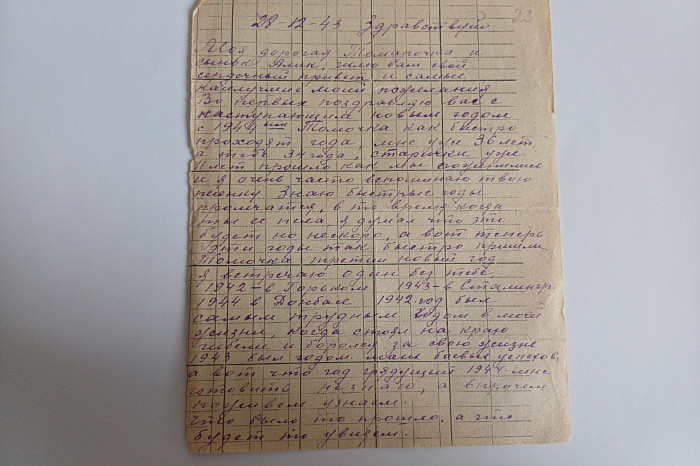 23
28-12-43 Здравствуй
Моя дорогая Томарочка и
сынок Алик, шлю вам свой
сердечный привет и самые
наилучшие мои пожелания
Во первых поздравляю вас с
наступающим новым годом
с 1944 ым Томочка как быстро
проходят года, мне уже 36 лет
а тебе 34 года, старички уже
лет прошло как мы сошлись
и я очень часто вспоминаю твою
песенку Знаю быстрые годы
промчатся, в то время когда
ты ее пела я думал что это
будет но нескоро, а вот теперь
эти годы так быстро пришли
Томочка третий новый год
я встречаю один без тебя,
1942-в Горьком 1943-в Сталингр.
1944 в Донбасе 1942 год был
самым трудным годом в моей
жизни, когда стоял на краю
гибели и боролся за свою жизнь
1943 был годом боевых успехов,
а вот что год грядущий 1944 мне
готовить не знаю, а впрочем
поживем узнаем.
Что было то прошло, а что
будет то увидем.